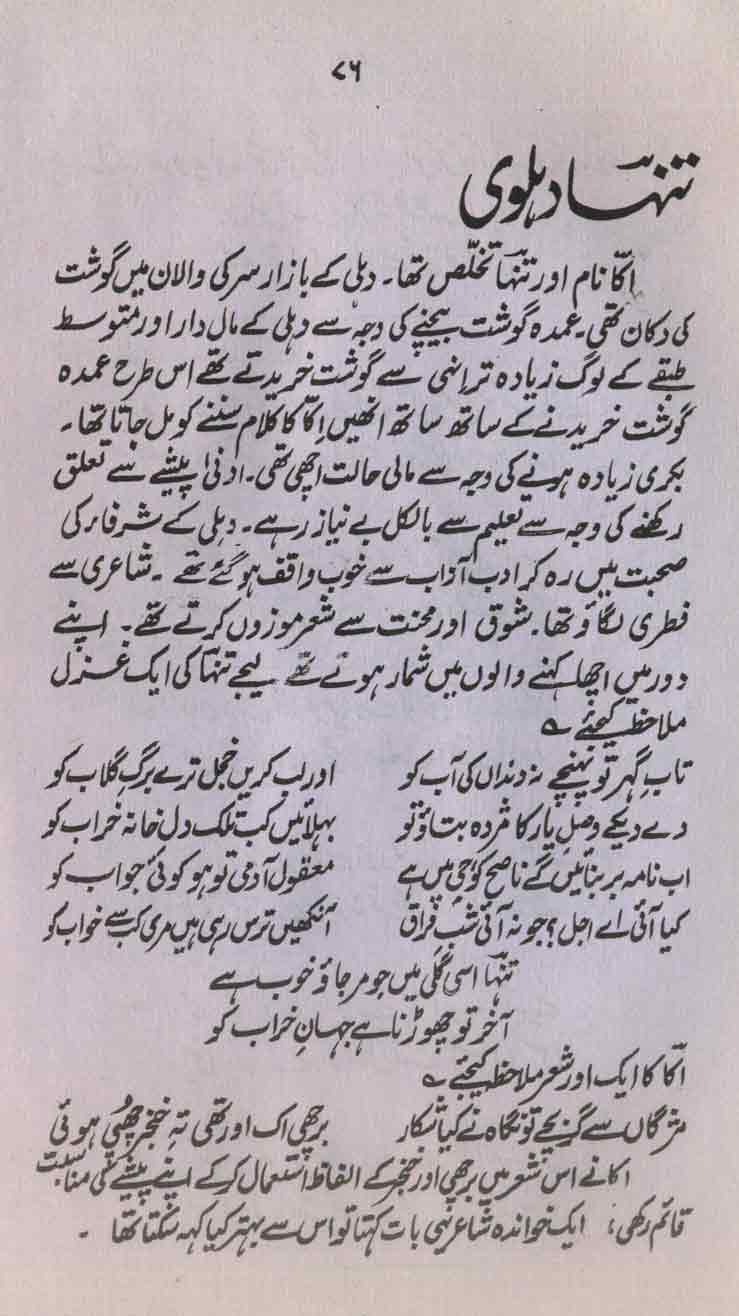 ۷۶
تنہا دہلوی
اکّا نام اور تنہا تخلّص تھا۔ دہلی کے بازار سرکی والان میں گوشت
کی دکان تھی۔ عمدہ گوشت بیچنے کی وجہ سے دہلی کے مال دار اور متوسط
طبقے کے لوگ زیادہ تر انہی سے گوشت خریدتے تھے اس طرح عمدہ
گوشت خریدنے کے ساتھ ساتھ انھیں اِکّا کا کلام سننے کو مل جاتا تھا۔
بکری زیادہ ہونے کی وجہ سے مالی حالت اچھی تھی۔ ادنیٰ پیشے سے تعلق
رکھنے کی وجہ سے تعلیم سے بالکل بے نیاز رہے۔ دہلی کے شرفاء کی
صحبت میں رہ کر ادب آداب سے خوب واقف ہوگئے تھے۔ شاعری سے
فطری لگاؤ تھا۔ شوق اور محنت سے شعر موزوں کرتے تھے۔ اپنے
دور میں اچھا کہنے والوں میں شمار ہوتے تھے لیجے تنہا کی ایک غزل
ملاحظہ کیجئے ؎
تابِ گہر تو پہنچے نہ دنداں کی آب کو اور لب کریں خجل ترے برگِ گلاب کو
دے دیکے وصلِ یار کا مژدہ بتاؤ تو بہلائیں کب تلک دل خانہ خراب کو
اب نامہ بر بنائیں گے ناصح کو جی میں ہے معقول آدمی تو ہو کوئی جواب کو
کیا آئی اے اجل؟ جو نہ آئی شبِ فراق آنکھیں ترس رہی ہیں مری کب سے خواب کو
تنہا اسی گلی میں جو مر جاؤ خوب ہے
آخر تو چھوڑنا ہے جہانِ خراب کو
اکّا کا ایک اور شعر ملاحظہ کیجئے ؎
مژگاں سے گر بچے تو نگاہ نے کیا شکار برچھی اک اور تھی تہِ خنجر چھپی ہوئی
اکا نے اس شعر میں برچھی اور خنجر کے الفاظ استعمال کرکے اپنے پیشے کی مناسبت
قائم رکھی، ایک خواندہ شاعر یہی بات کہتا تو اس سے بہتر کیا کہہ سکتا تھا۔